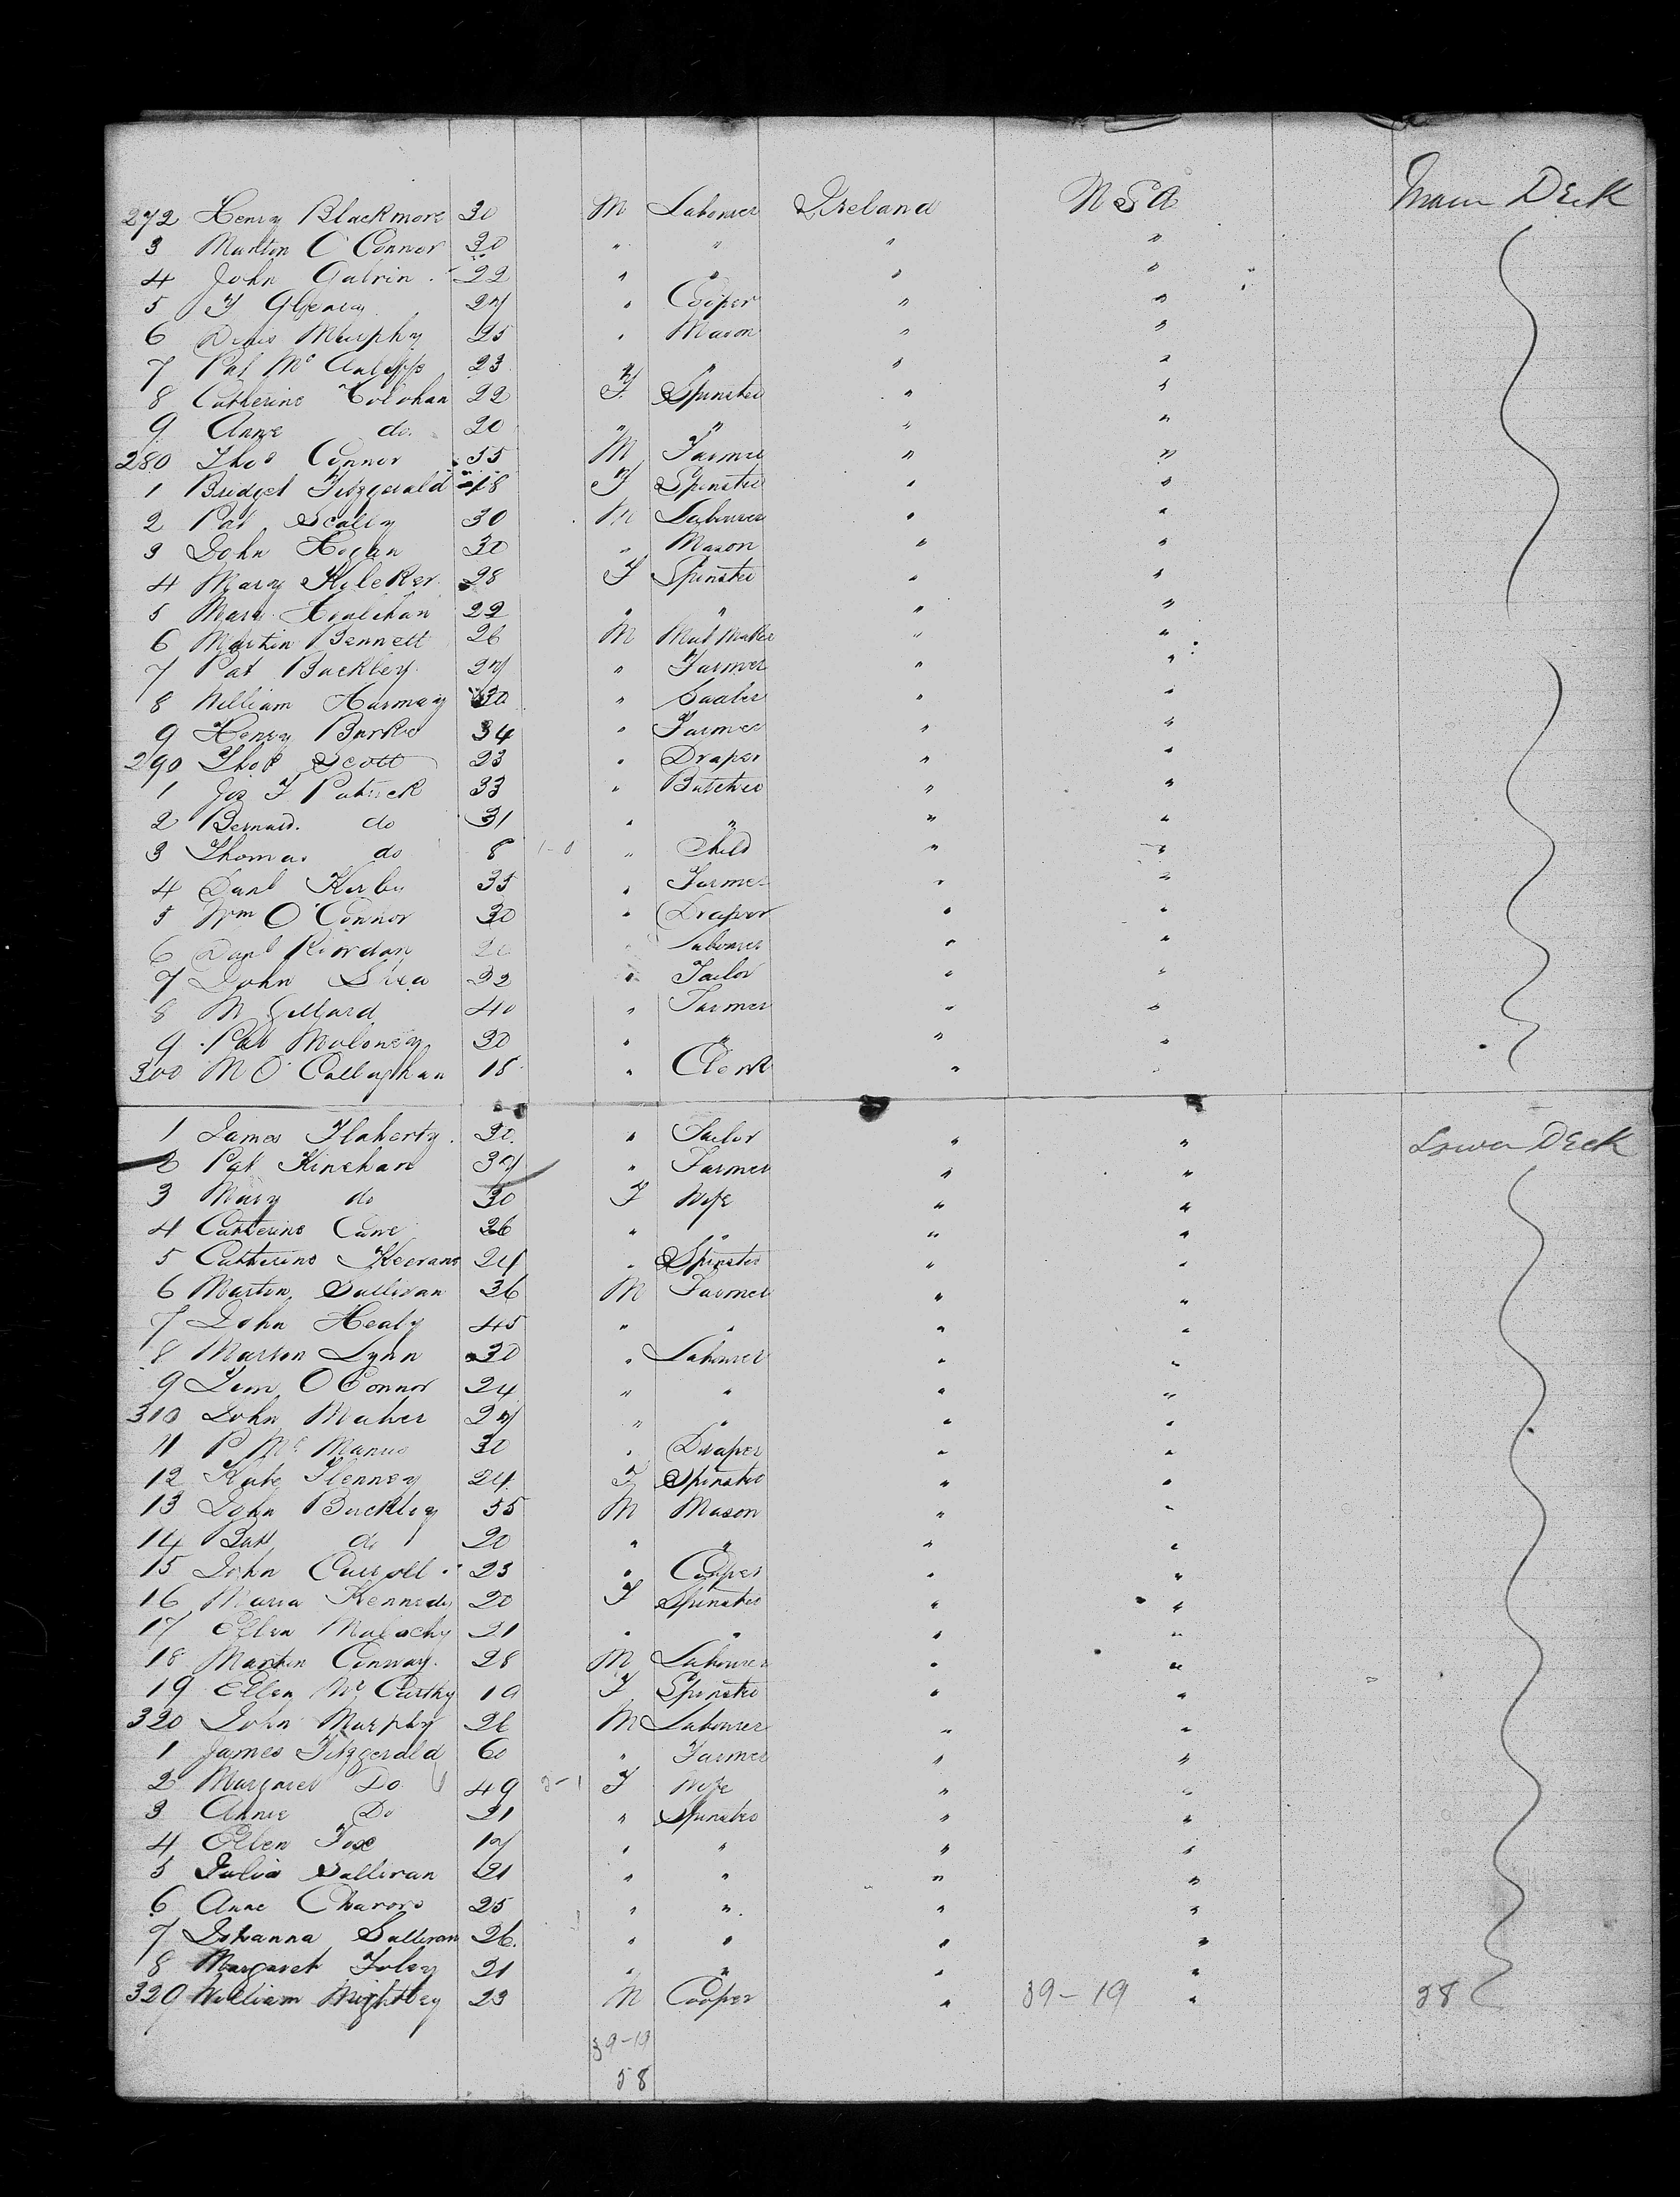 272 Henry Blackmore 30 M Labourer Ireland U S A Main Deck
3 Marton O'Connor 30 " " " "
4 John Galvin 22 " " " "
5 27 " Cooper " "
6 Denis Murphy 25 " Mason " "
7 Pat Mc 23 " " " "
8 Catherine 22 F Spinster " "
9 Anne do 20 " " " "
280 Thos Connor 55 M Farmer " "
1 Bridget Fitzgerald 18 F Spinster " "
2 Pat Scally 30 M Labourer " "
3 John Hogan 30 " Mason " "
4 Mary 28 F Spinster " "
5 Mary 22 " " " "
6 Martin Bennett 26 M Mat Maker " "
7 Pat Buckley 27 " Farmer " "
8 William 30 " Sadler " "
9 Henry Burke 34 " Farmer " "
290 Thos Scott 23 " Draper " "
1 Jos F Patrick 33 " Butcher " "
2 Bernard do 31 " " " "
3 Thomas do 8 1-0 " Child " "
4 Danl Kerby 35 " Farmer " "
5 Wm O'Connor 30 " Draper " "
6 Danl Riordan " Labourer " "
7 John Shea 32 " Tailor " "
8 M Gillard 40 " Farmer " "
9 Pat Moloney 30 " " " "
300 M O'Callaghan 18 " Clerk " "
1 James Flaherty 30 " Tailor " " Lower Deck
2 Pat Kinehan 37 " Farmer " "
3 Mary do 30 F Wife " "
4 Catherine Cane 26 " " " "
5 Catherine Keerans 24 " Spinster " "
6 Martin Sullivan 36 M Farmer " "
7 John Healy 45 " " " "
8 Marton Lynn 30 " Labourer " "
9 Jem O'Connor 24 " " " "
310 John Maher 27 " " " "
11 P Mc Manus 30 " Draper " "
12 Kate 24 F Spinster " "
13 John Buckley 55 M Mason " "
14 do 20 " " " "
15 John Carroll 23 " Cooper " "
16 Maria Kennedy 20 F Spinster " "
17 Ellen Malachy 21 " " " "
18 Martin Conway 28 M Labourer " "
19 Ellen Mc Carthy 19 F Spinster " "
320 John Murphy 26 M Labourer " "
1 James Fitzgerald 60 " Farmer " "
2 Margaret Do 49 2-1 F Wife " "
3 Annie Do 21 " Spinster " "
4 Ellen Fox 17 " " " "
5 Julia Sullivan 21 " " " "
6 Anne 25 " " " "
7 Johanna Sullivan 26 " " " "
8 Margaret Foley 21 " " " "
329 William 23 M Cooper " 39-19 "
39-19
58